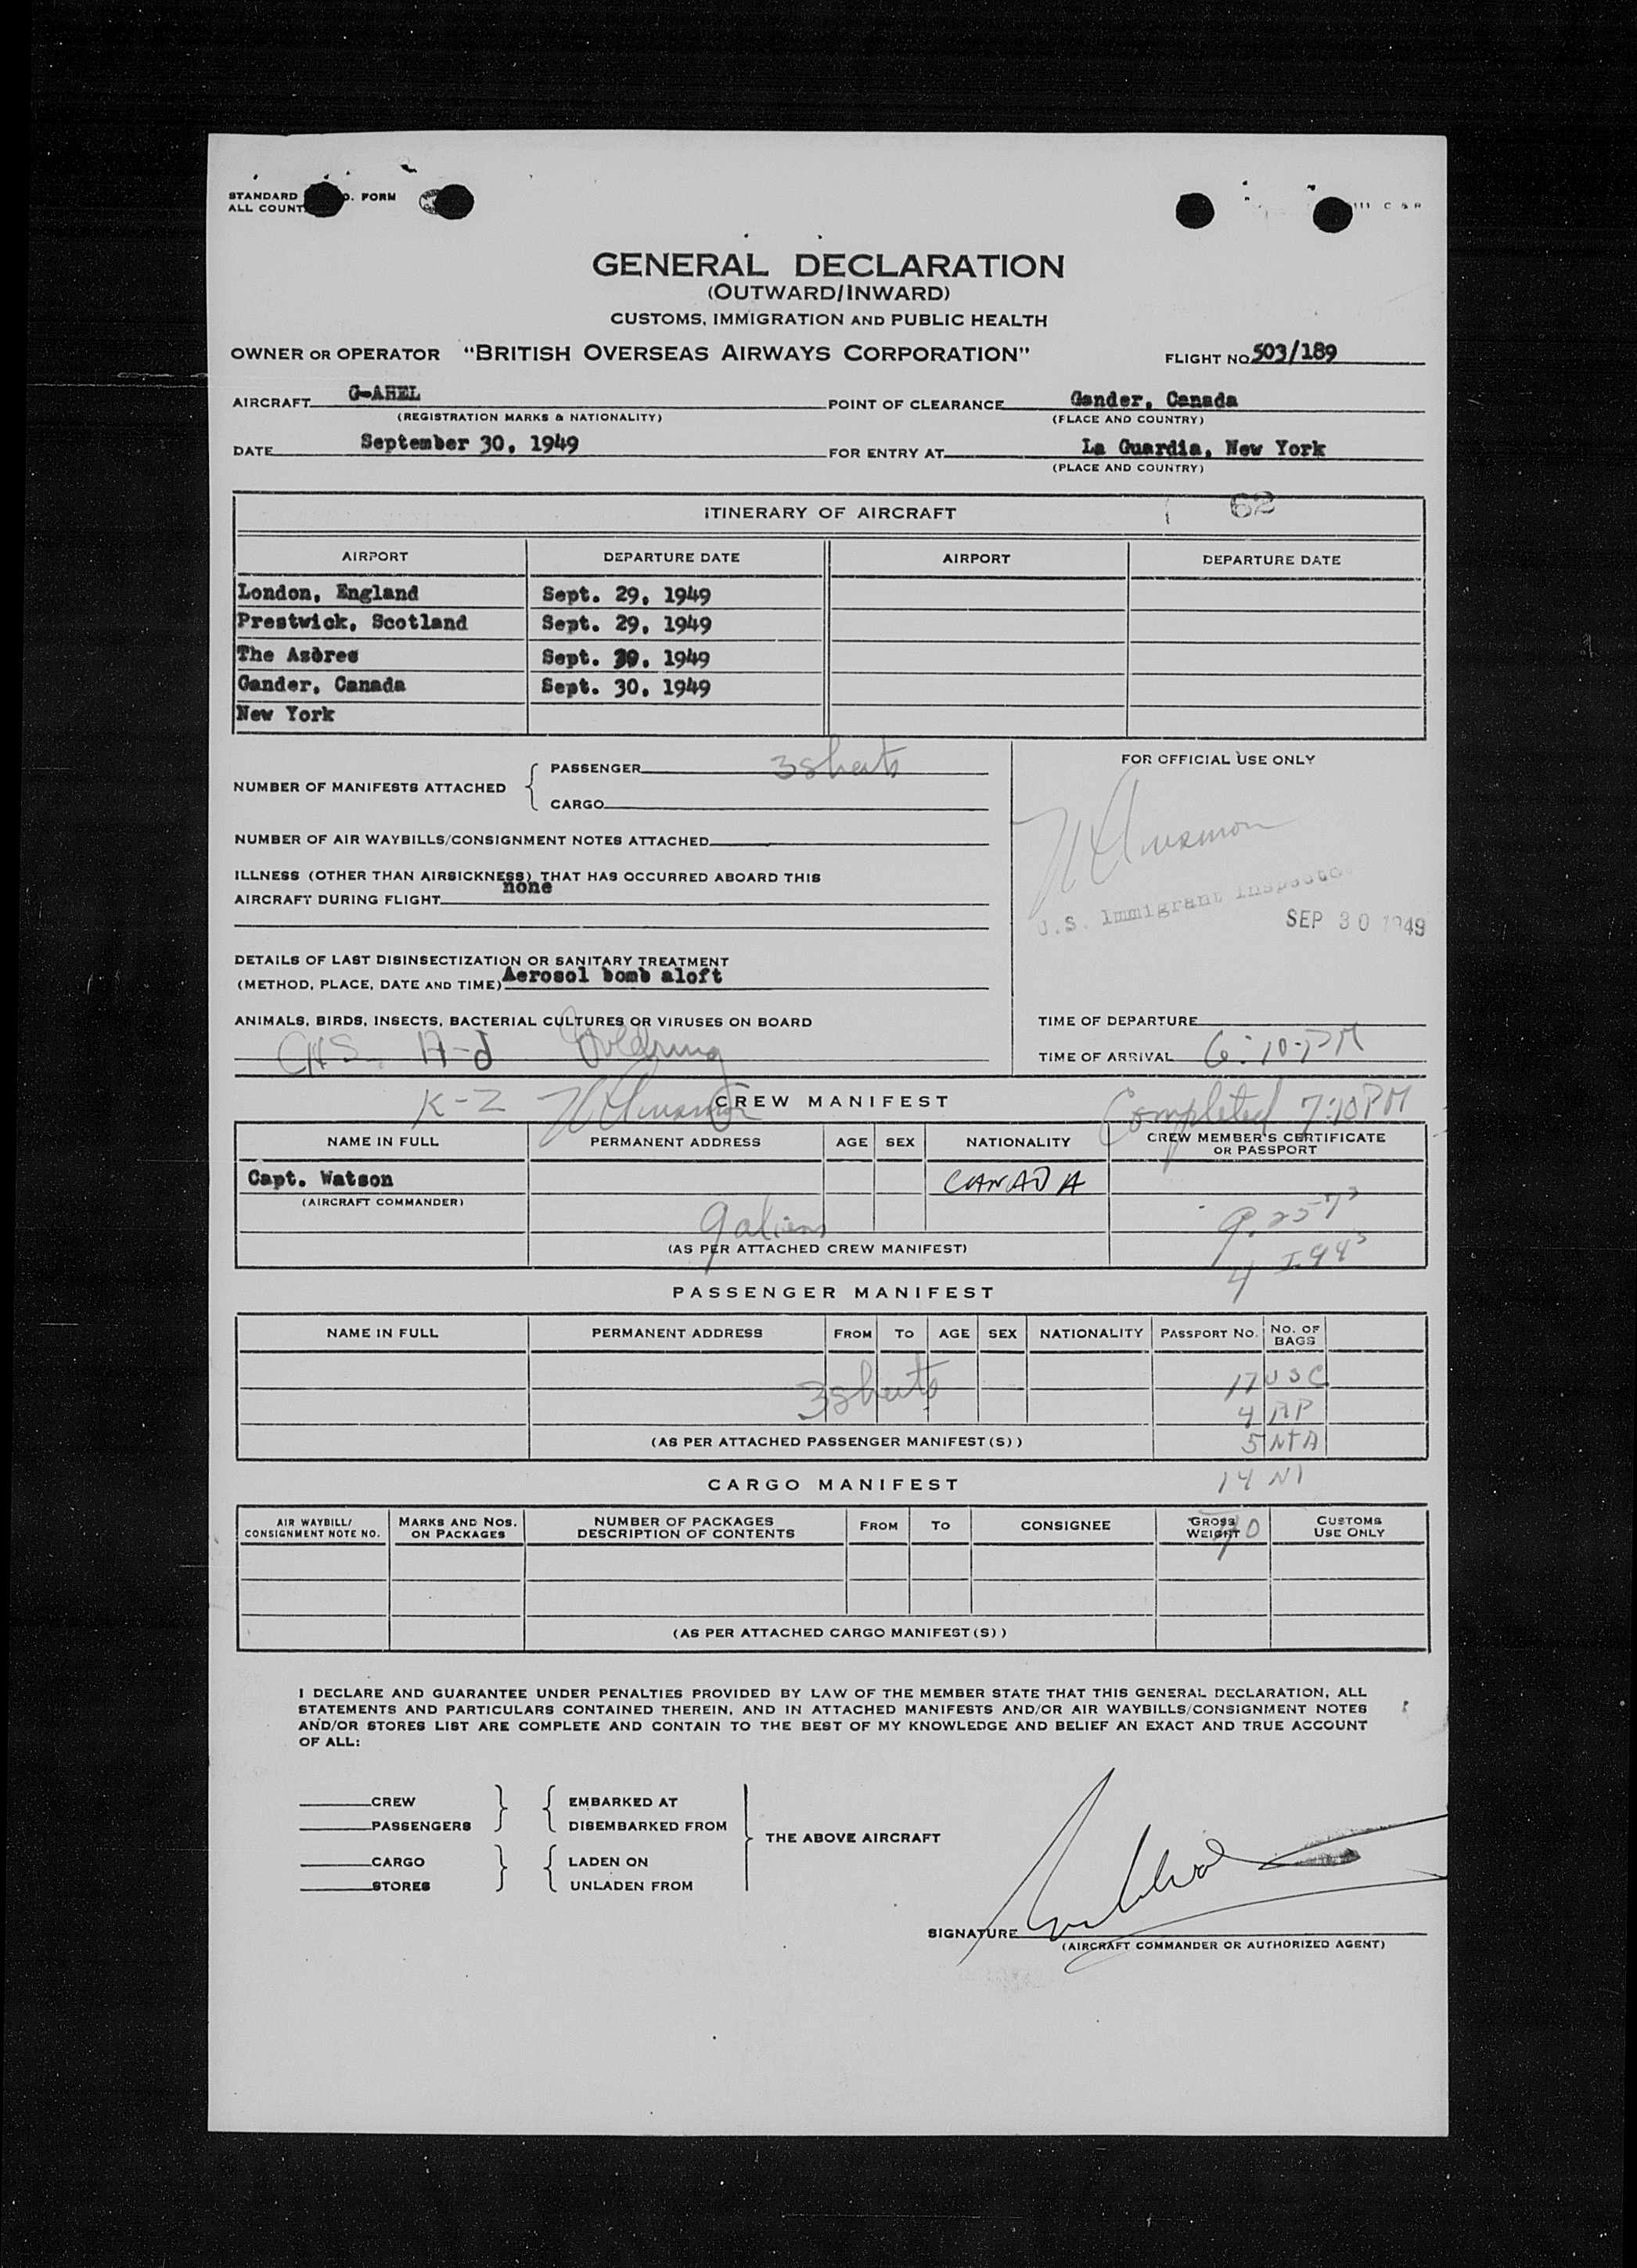 STANDARD FORM
ALL COUNT
C & R
GENERAL DECLARATION
(OUTWARD/INWARD)
CUSTOMS, IMMIGRATION AND PUBLIC HEALTH
OWNER OR OPERATOR "BRITISH OVERSEAS AIRWAYS CORPORATION" FLIGHT NO. 503/189
AIRCRAFT G-AHEL POINT OF CLEARANCE Gander, Canada
(REGISTRATION MARKS & NATIONALITY) (PLACE AND COUNTRY)
DATE September 30, 1949 FOR ENTRY AT La Guardia, New York
(PLACE AND COUNTRY)
ITINERARY OF AIRCRAFT 62
AIRPORT DEPARTURE DATE AIRPORT DEPARTURE DATE
London, England Sept. 29, 1949
Prestwick, Scotland Sept. 29, 1949
The Azores Sept. 30, 1949
Gander, Canada Sept. 30, 1949
New York
FOR OFFICIAL USE ONLY
NUMBER OF MANIFESTS ATTACHED { PASSENGER 3 sheets
CARGO
NUMBER OF AIR WAYBILLS/CONSIGNMENT NOTES ATTACHED
ILLNESS (OTHER THAN AIRSICKNESS) THAT HAS OCCURRED ABOARD THIS
AIRCRAFT DURING FLIGHT none
U.S. Immigrant Inspector
SEP 30 1949
DETAILS OF LAST DISINSECTIZATION OR SANITARY TREATMENT
(METHOD, PLACE, DATE AND TIME) Aerosol bomb aloft
ANIMALS, BIRDS, INSECTS, BACTERIAL CULTURES OR VIRUSES ON BOARD
TIME OF DEPARTURE
A-J Goldring
TIME OF ARRIVAL 6:10 PM
K-Z CREW MANIFEST Completed 7:10 PM
NAME IN FULL PERMANENT ADDRESS AGE SEX NATIONALITY CREW MEMBER'S CERTIFICATE OR PASSPORT
Capt. Watson CANADA
(AIRCRAFT COMMANDER)
9 aliens
(AS PER ATTACHED CREW MANIFEST)
PASSENGER MANIFEST
NAME IN FULL PERMANENT ADDRESS FROM TO AGE SEX NATIONALITY PASSPORT NO. NO. OF BAGS
3 sheets 17 USC
4 RP
(AS PER ATTACHED PASSENGER MANIFEST(S)) 5 NTA
CARGO MANIFEST 14 NI
AIR WAYBILL/CONSIGNMENT NOTE NO. MARKS AND NOS. ON PACKAGES NUMBER OF PACKAGES DESCRIPTION OF CONTENTS FROM TO CONSIGNEE GROSS WEIGHT CUSTOMS USE ONLY
40
(AS PER ATTACHED CARGO MANIFEST(S))
I DECLARE AND GUARANTEE UNDER PENALTIES PROVIDED BY LAW OF THE MEMBER STATE THAT THIS GENERAL DECLARATION, ALL
STATEMENTS AND PARTICULARS CONTAINED THEREIN, AND IN ATTACHED MANIFESTS AND/OR AIR WAYBILLS/CONSIGNMENT NOTES
AND/OR STORES LIST ARE COMPLETE AND CONTAIN TO THE BEST OF MY KNOWLEDGE AND BELIEF AN EXACT AND TRUE ACCOUNT
OF ALL:
CREW EMBARKED AT
PASSENGERS DISEMBARKED FROM
THE ABOVE AIRCRAFT
CARGO LADEN ON
STORES UNLADEN FROM
SIGNATURE
(AIRCRAFT COMMANDER OR AUTHORIZED AGENT)